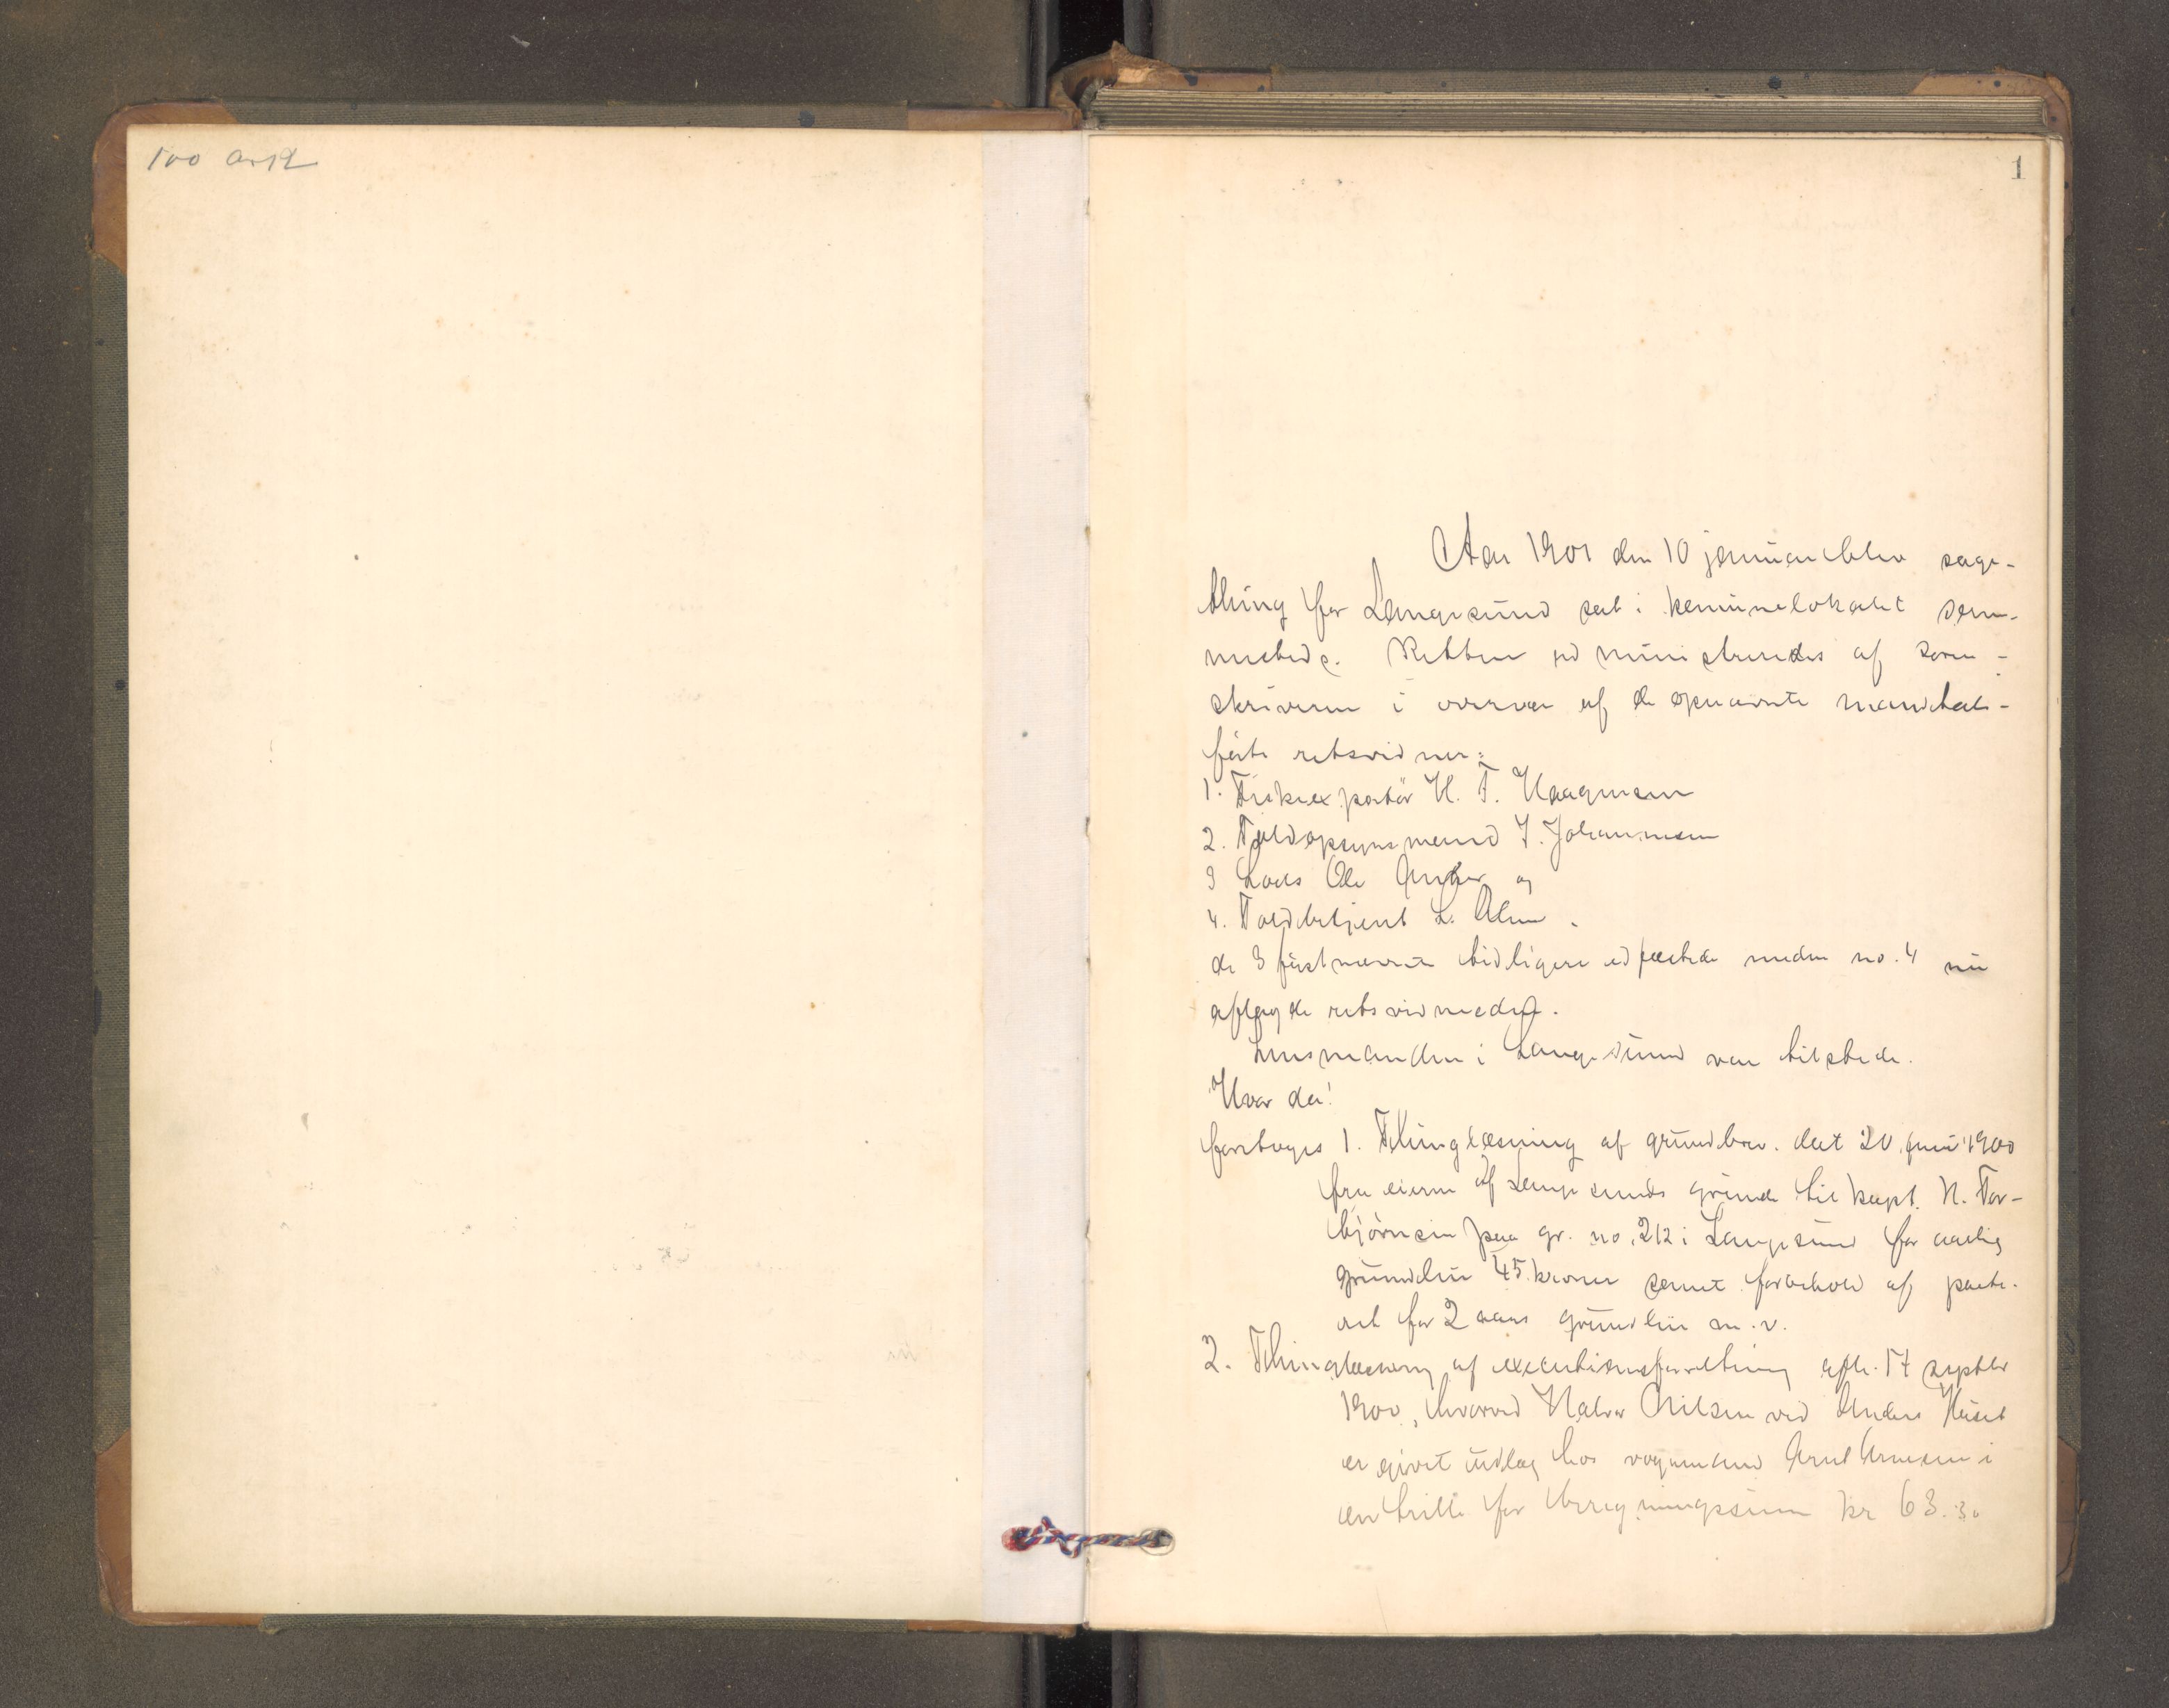 100 ark
1
Aar 1901 den 10 januar blev sage-
thing for Langesund sat i kommunelokalet sam-
mesteds. Retten administreredes af soren-
skriveren i overvær af de opnævnte mandtals-
førte retsvidner:
1. Fiskexportør H. T. Haagensen
2. Toldopsynsmand J. Johannesen
3 Lods Ole Anker og
4. Toldbetjent L. Alm.
de 3 førstnævnte tidligere edfæstede medens no. 4 nu
aflagde retsvidneedn.
Lensmanden i Langesund var tilstede.
Hvor da:
foretoges 1. Thinglæsning af grundbrev. dat 20 juni 1900
fra eieren af Langesunds grunde til kapt. N. Tor-
bjørnsen paa gr. no. 212 i Langesund for aarlig
grundleie 45 kroner samt forbehold af pante-
ret for 2 aars grundleie m. v.
2. Thinglæsning af executionsforretning afh. 17 septbr
1900, hvorved Halvor Nilsen ved Anders
er givet udlæg hos vognmand Arnt Arnesen i
en trille for kr 63.30